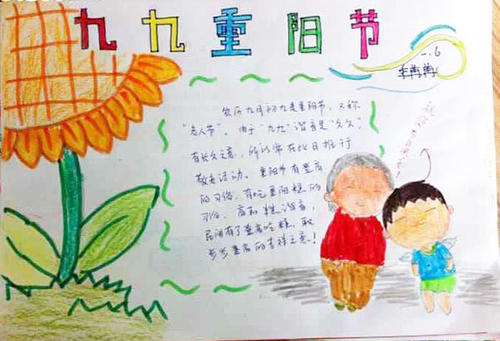 九九重阳节
一.6
农历九月初九是重阳节,又称
"老人节"。由于"九九"谐音是"久久",
有长久之意,所以常在此日推行
敬老活动。重阳节有登高
的习俗,有吃重阳糕的
习俗,高和糕谐音,
民间有了登高吃糕,取
步步登高的吉祥之意!